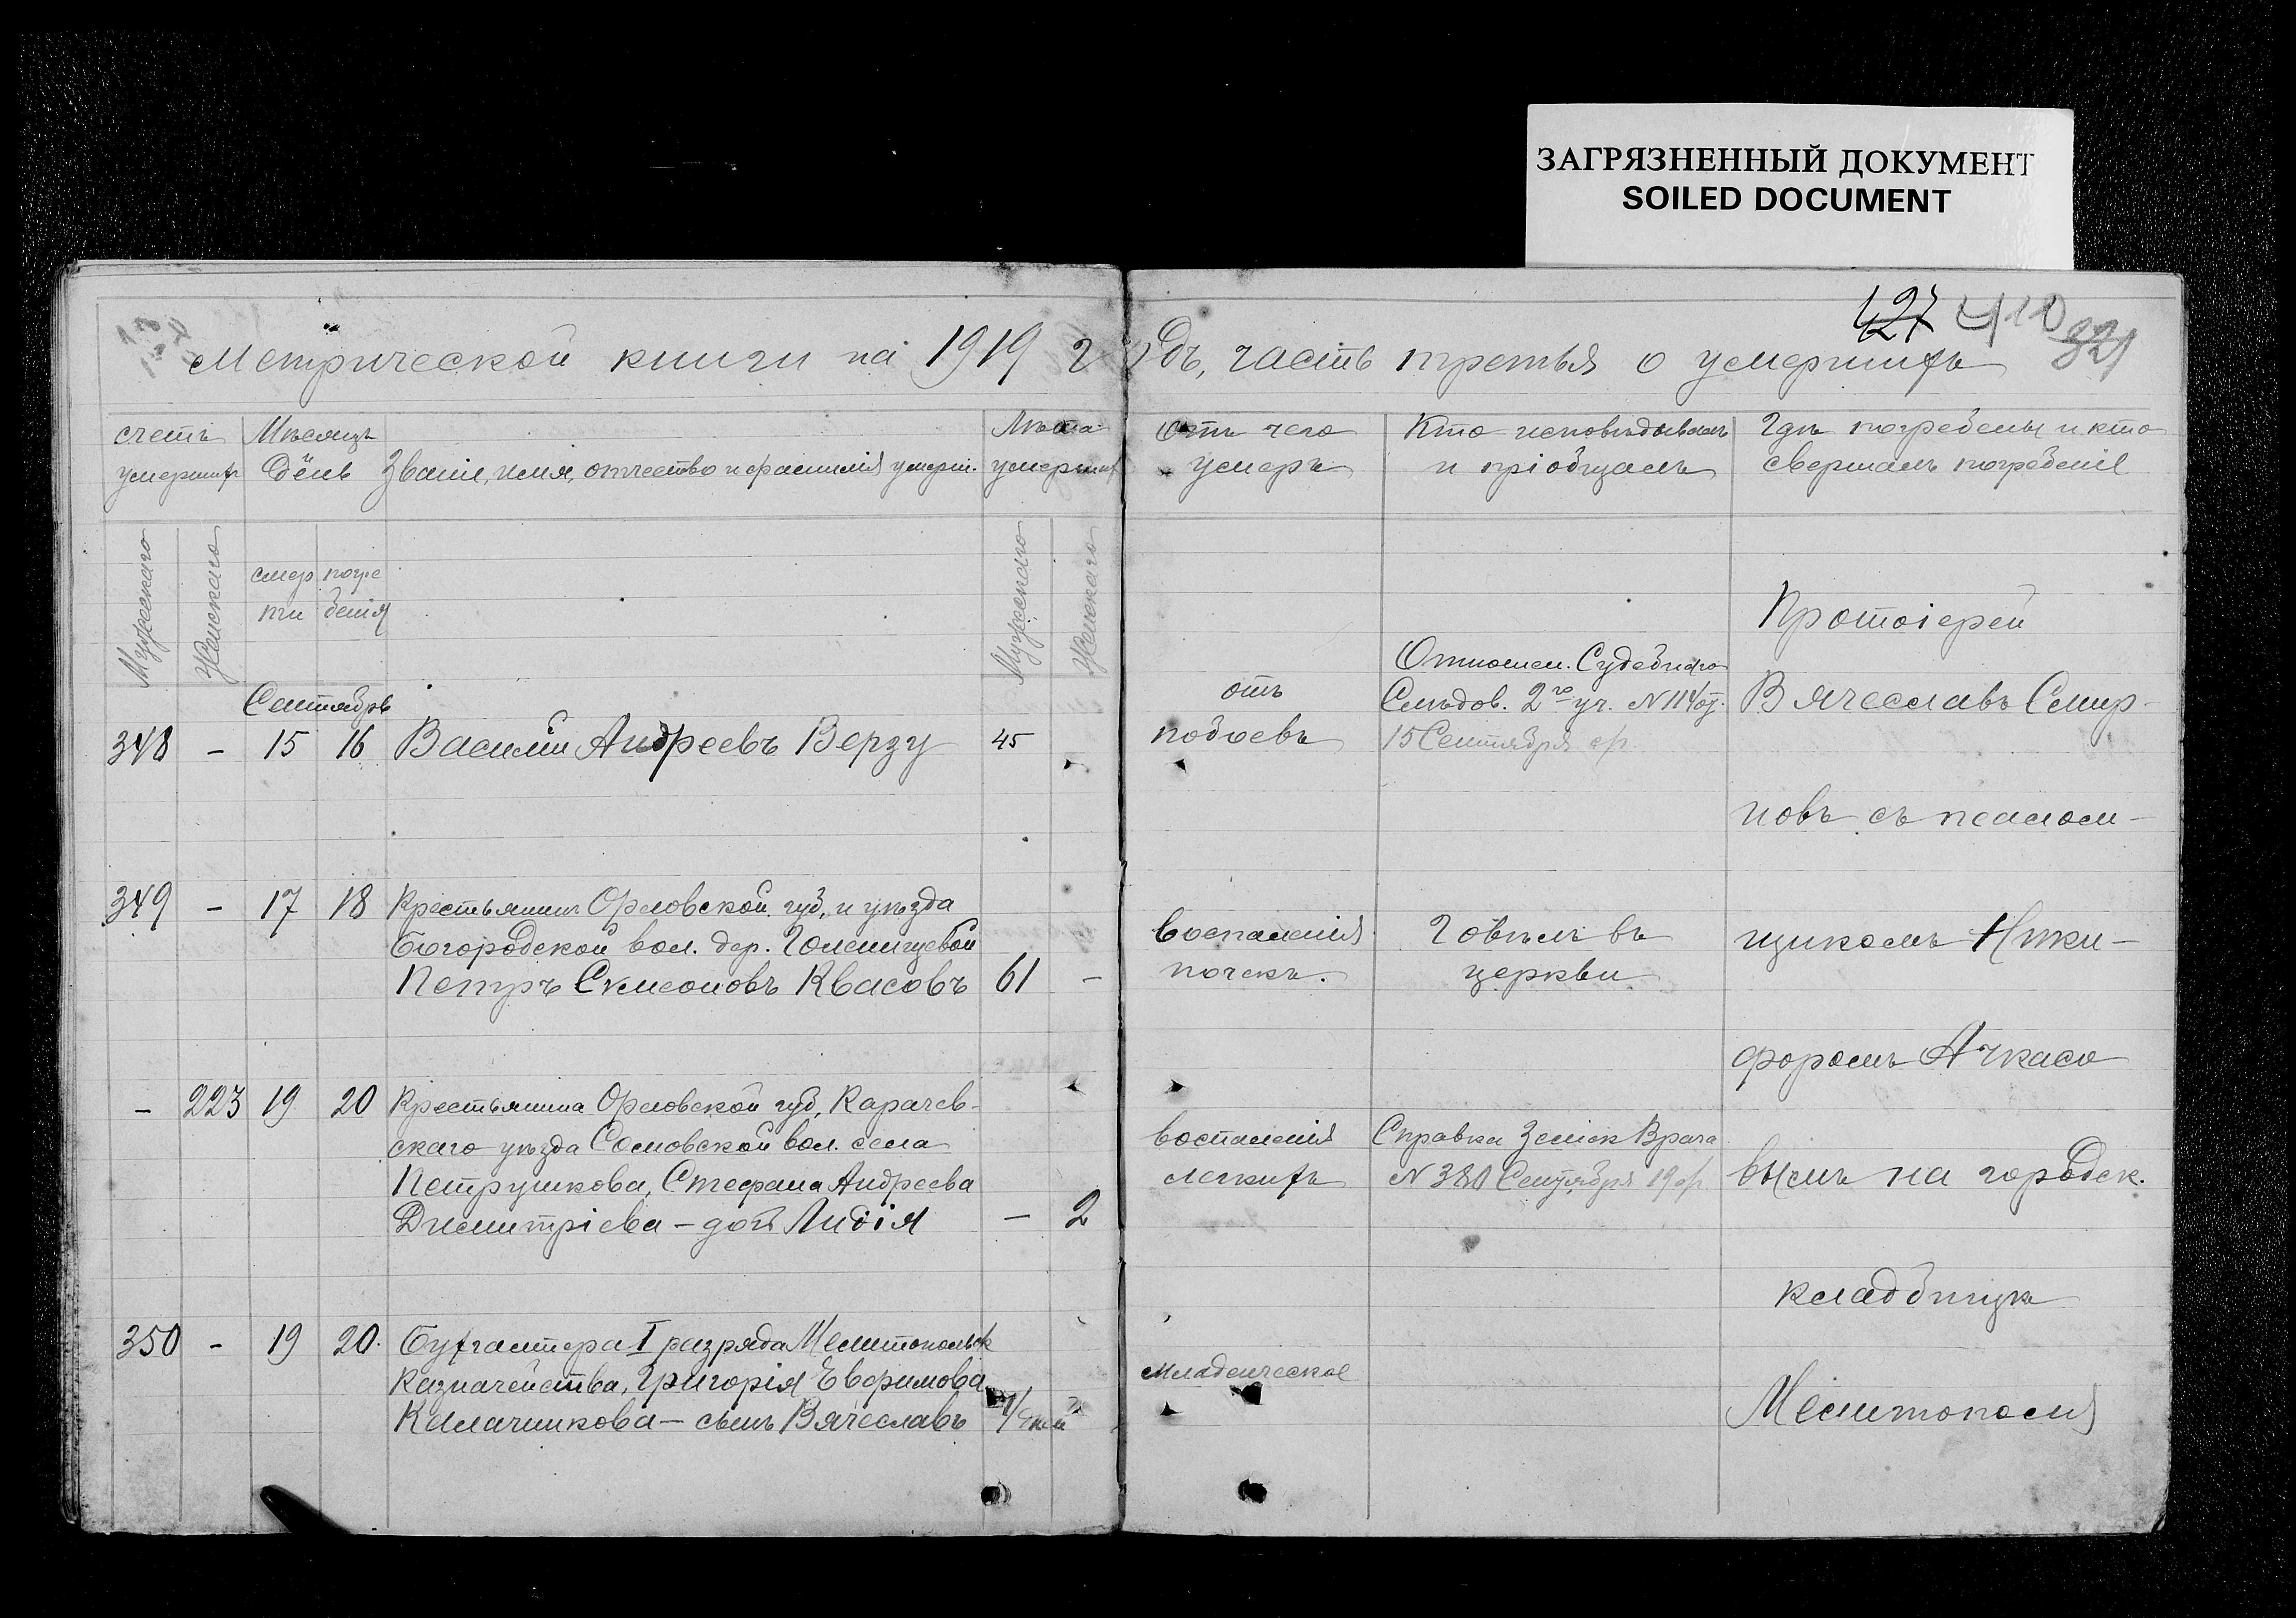 ЗАГРЯЗНЕННЫЙ ДОКУМЕНТ
SOILED DOCUMENT
127 410
321
Метрической книги на 1919 годъ, часть третья о умершихъ
счетъ умершихъ
Мѣсяцъ День
Званіе, имя, отчество и фамилія умерш.
Лѣта умершихъ
Отъ чего умеръ
Кто исповѣдывалъ и пріобщалъ
Гдѣ погребены и кто свершалъ погребеніе
Мужескаго
Женскаго
смерти
погребенія
Мужескаго
Женскаго
Сентябрь
348 – 15 16 Василій Андреевъ Верзу 45
отъ
побоевъ
Отношен. Судебнаго
Слѣдов. 2го уч. N 1140 от.
15 Сентября с/г.
349 – 17 18 Крестьянинъ Орловской губ, и уѣзда
Богородской вол. дер. Голенищевой
Петръ Сѵмеоновъ Квасовъ 61 –
Воспаленія
почекъ.
Говѣлъ въ
церкви
– 223 19 20 Крестьянина Орловской губ, Карачев-
скаго уѣзда Сомовской вол. села
Петрушкова, Стефана Андреева
Димитріева – дочь Лидія – 2
воспаленія
легкихъ
Справка Земск Врача
N 380 Сентября 19 с/г.
350 – 19 20. Бухгалтера I разряда Мелитопольск
Казначейства, Григорія Евфимова
Калачникова – сынъ Вячеславъ
Младенческое
Протоіерей
Вячеславъ Смир-
новъ съ псалом-
щикомъ Ники-
форомъ Ачкасо
вымъ на городск.
кладбищѣ
Мелитополя